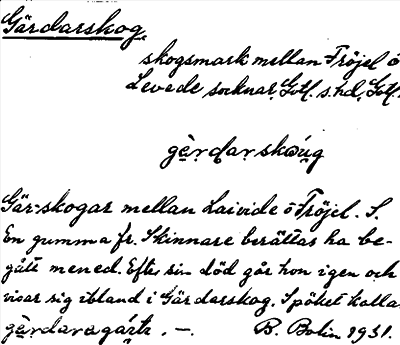 Gärdarskog.
skogsmark mellan Fröjel o
Levede socknar, Gotl. s. hd, Gotl.
Gär-skogar mellan Laivide o Fröjel. S.
En gumma fr. Skinnare berättas ha be-
gått mened. Efter sin död går hon igen och
visar sig ibland i Gärdarskog. Spöket kalla
B. Bolin 1931.